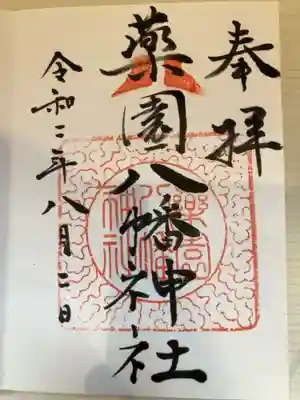 奉拝
薬園八幡神社
令和三年八月二日